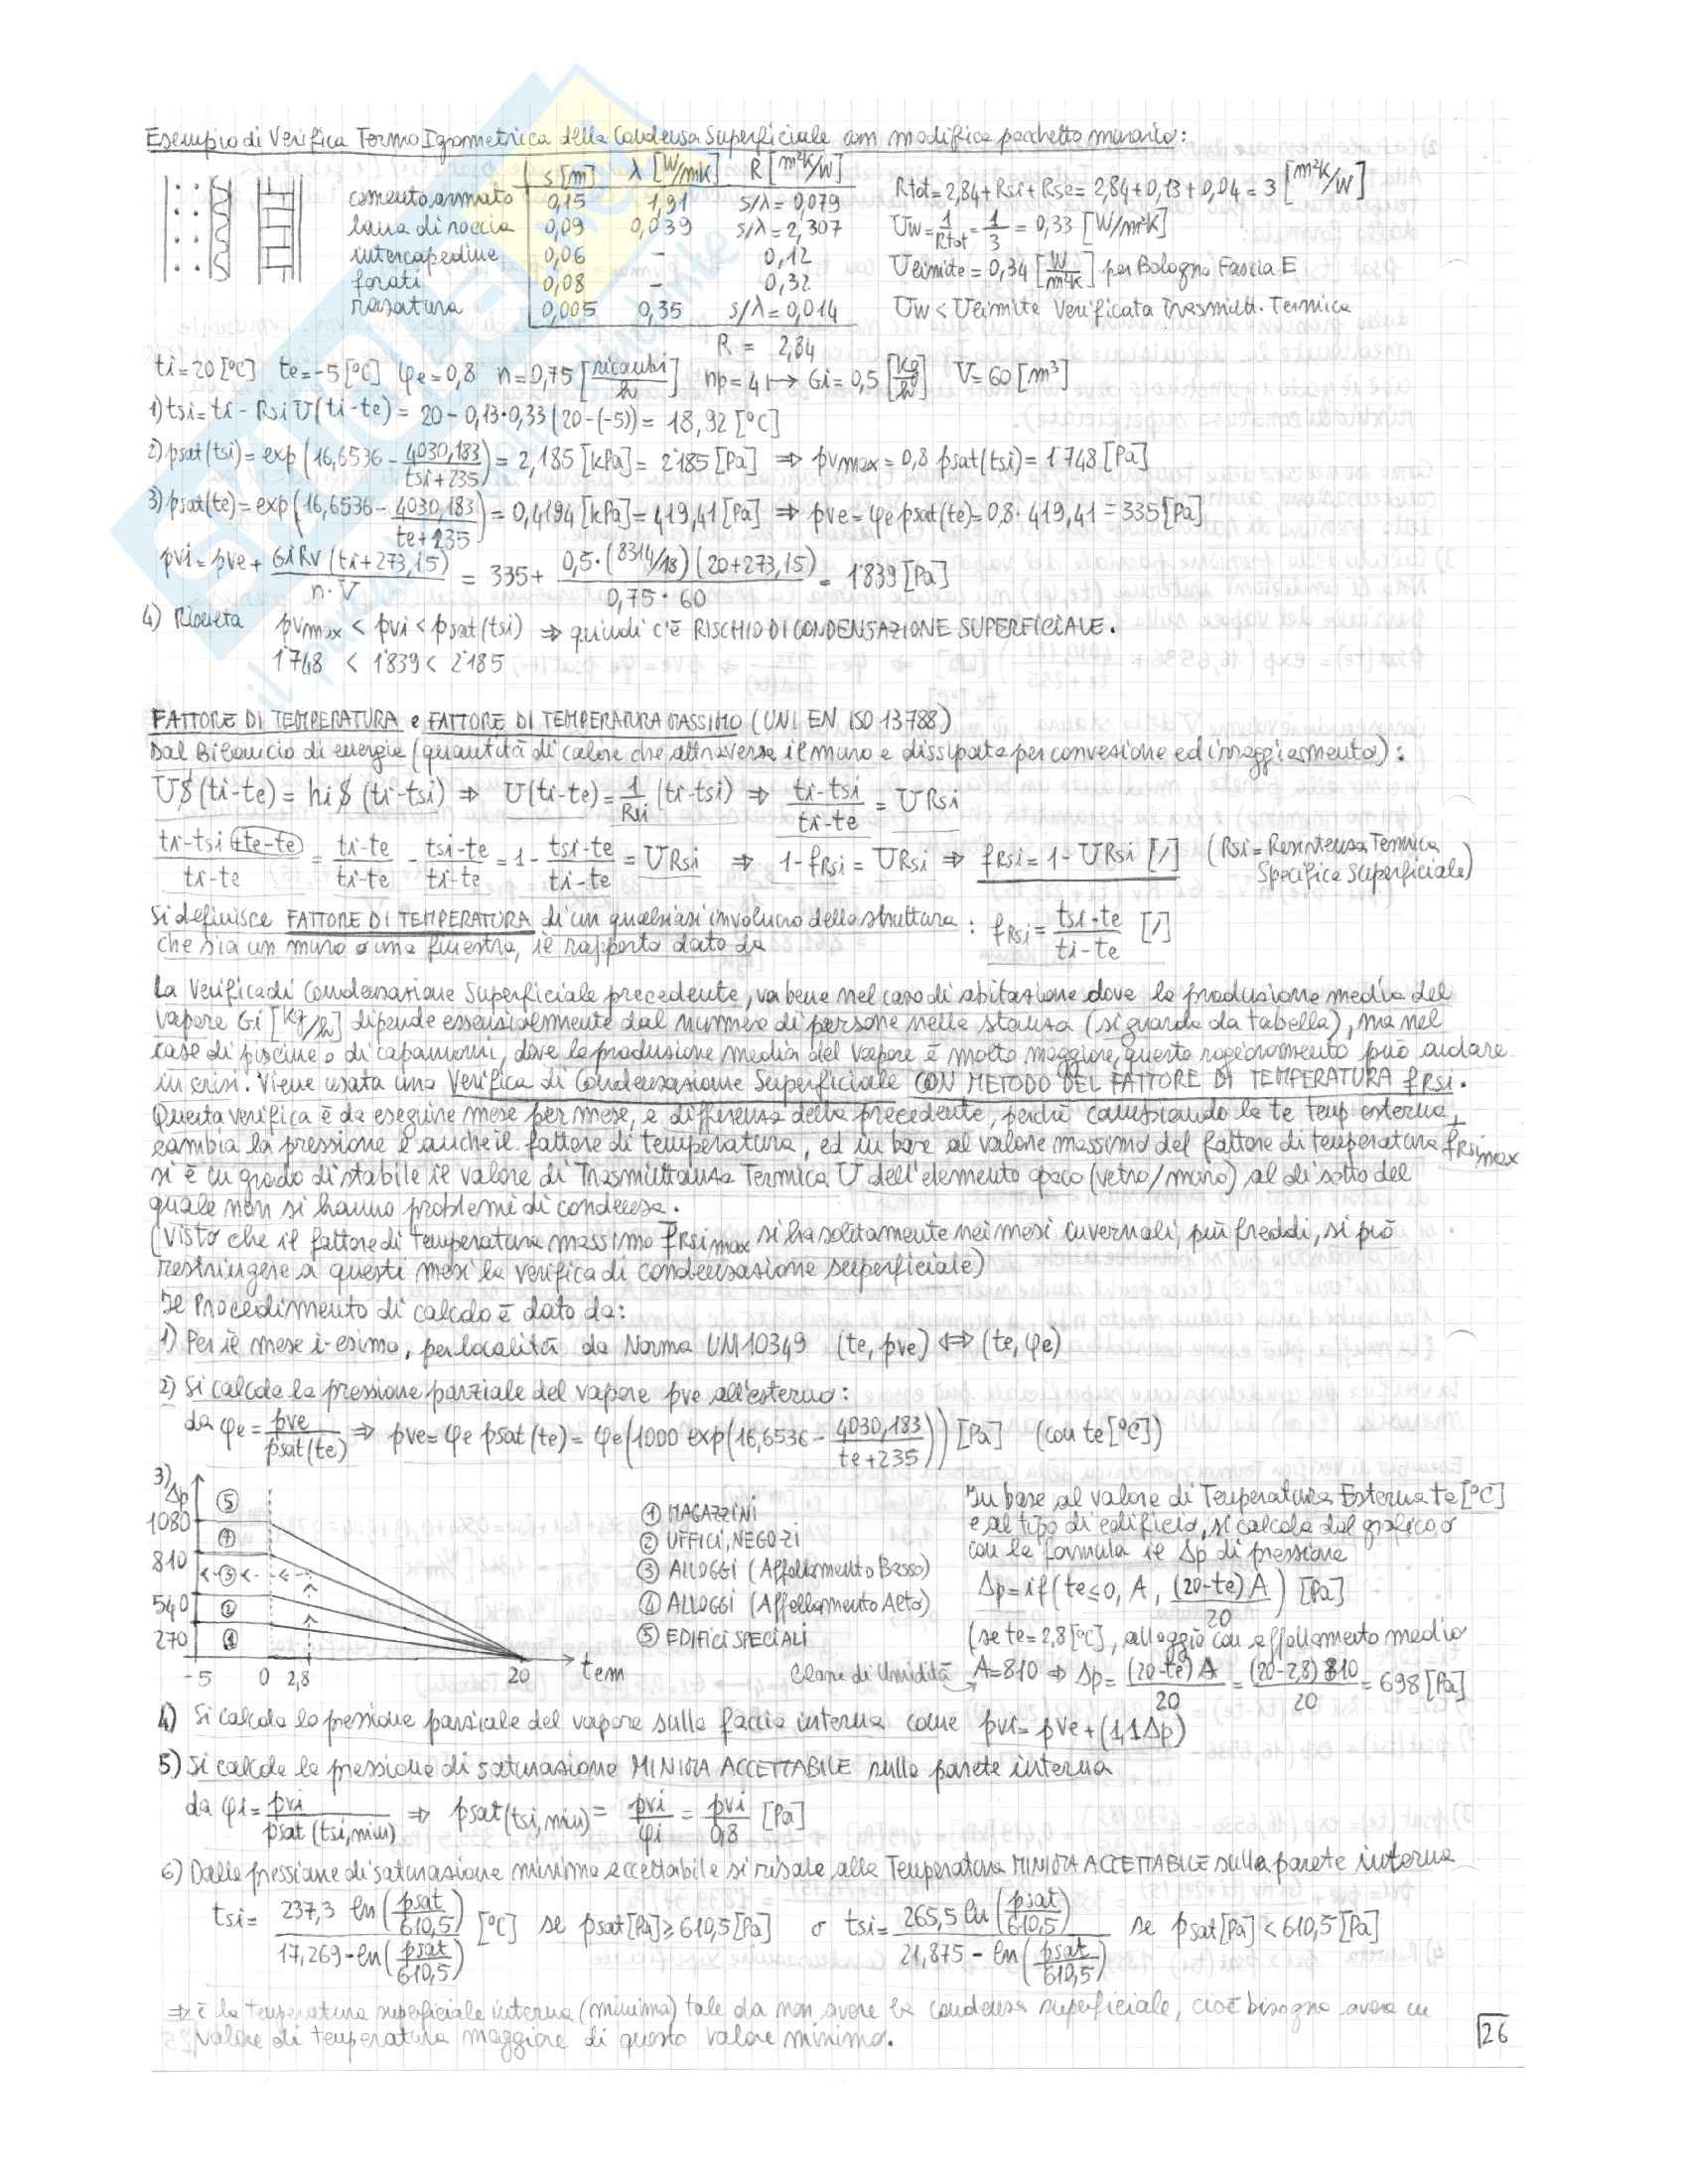 Esempio di Verifica TermoIgrometrica della Condensa Superficiale con modifica pacchetto murario:
s [m] λ [W/mK] R [m²K/W]
cemento armato 0,15 1,91 s/λ = 0,079
lana di roccia 0,09 0,039 s/λ = 2,307
intercapedine 0,06 – 0,12
forati 0,08 – 0,32
rasatura 0,005 0,35 s/λ = 0,014
R = 2,84
Rtot = 2,84 + Rsi + Rse = 2,84 + 0,13 + 0,04 = 3 [m²K/W]
Uw = 1/Rtot = 1/3 = 0,33 [W/m²K]
Ulimite = 0,34 [W/m²K] per Bologna Fascia E
Uw < Ulimite Verificata Trasmitt. Termica
ti = 20 [°C] te = -5 [°C] φe = 0,8 n = 0,75 [ricambi/h] np = 4 ↦ Gi = 0,5 [kg/h] V = 60 [m³]
1) tsi = ti - Rsi U (ti-te) = 20 - 0,13·0,33 (20-(-5)) = 18,92 [°C]
2) psat(tsi) = exp(16,6536 - 4030,183/(tsi+235)) = 2,185 [kPa] = 2185 [Pa] ⇒ pvmax = 0,8 psat(tsi) = 1748 [Pa]
3) psat(te) = exp(16,6536 - 4030,183/(te+235)) = 0,4194 [kPa] = 419,41 [Pa] ⇒ pve = φe psat(te) = 0,8 · 419,41 = 335 [Pa]
pvi = pve + GiRv (ti+273,15)/(n·V) = 335 + 0,5·(8314/18)(20+273,15)/(0,75·60) = 1839 [Pa]
4) Risulta pvmax < pvi < psat(tsi) ⇒ quindi c'è RISCHIO DI CONDENSAZIONE SUPERFICIALE.
1748 < 1839 < 2185
FATTORE DI TEMPERATURA e FATTORE DI TEMPERATURA MASSIMO (UNI EN ISO 13788)
Dal Bilancio di energia (quantità di calore che attraversa il muro e dissipata per convezione ed irraggiamento):
US(ti-te) = hi S (ti-tsi) ⇒ U(ti-te) = 1/Rsi (ti-tsi) ⇒ (ti-tsi)/(ti-te) = URsi
(ti-tsi+te-te)/(ti-te) = (ti-te)/(ti-te) - (tsi-te)/(ti-te) = 1 - (tsi-te)/(ti-te) = URsi ⇒ 1-fRsi = URsi ⇒ fRsi = 1 - URsi [/] (Rsi = Resistenza Termica Specifica Superficiale)
Si definisce FATTORE DI TEMPERATURA di un qualsiasi involucro della struttura : fRsi = (tsi-te)/(ti-te) [/]
che sia un muro o una finestra, il rapporto dato da
La Verifica di Condensazione Superficiale precedente, va bene nel caso di abitazione dove la produzione media del
vapore Gi [kg/h] dipende essenzialmente dal numero di persone nella stanza (si guarda da tabella), ma nel
caso di piscine o di capannoni, dove la produzione media del vapore è molto maggiore, questo ragionamento può andare
in crisi. Viene usata una Verifica di Condensazione Superficiale CON METODO DEL FATTORE DI TEMPERATURA fRsi.
Questa verifica è da eseguire mese per mese, a differenza della precedente, perchè cambiando la te temp esterna,
cambia la pressione e anche il fattore di temperatura, ed in base al valore massimo del fattore di temperatura fRsimax
si è in grado di stabile il valore di Trasmittanza Termica U dell'elemento opaco (vetro/muro) al di sotto del
quale non si hanno problemi di condensa.
(Visto che il fattore di temperatura massimo fRsimax si ha solitamente nei mesi invernali, più freddi, si può
restringere a questi mesi la verifica di condensazione superficiale)
Il Procedimento di calcolo è dato da:
1) Per il mese i-esimo, per località da Norma UNI 10349 (te, pve) ⇔ (te, φe)
2) Si calcola la pressione parziale del vapore pve all'esterno:
da φe = pve/psat(te) ⇒ pve = φe psat(te) = φe(1000 exp(16,6536 - 4030,183/(te+235))) [Pa] (con te [°C])
3) Δp
1080
810
540
270
⑤
④
③
②
①
-5 0 2,8 20 tem
① MAGAZZINI
② UFFICI, NEGOZI
③ ALLOGGI (Affollamento Basso)
④ ALLOGGI (Affollamento Alto)
⑤ EDIFICI SPECIALI
In base al valore di Temperatura Esterna te [°C]
e al tipo di edificio, si calcola dal grafico o
con la formula il Δp di pressione
Δp = if(te≤0, A, (20-te)A/20) [Pa]
(se te = 2,8 [°C], alloggio con affollamento medio
Classe di Umidità A = 810 ⇒ Δp = (20-te)A/20 = (20-2,8)810/20 = 698 [Pa]
4) Si calcola la pressione parziale del vapore sulla faccia interna come pvi = pve + (1,1Δp)
5) Si calcola la pressione di saturazione MINIMA ACCETTABILE sulla parete interna
da φi = pvi/psat(tsi,min) ⇒ psat(tsi,min) = pvi/φi = pvi/0,8 [Pa]
6) Dalla pressione di saturazione minima accettabile si risale alla Temperatura MINIMA ACCETTABILE sulla parete interna
tsi = 237,3 ln(psat/610,5)/(17,269 - ln(psat/610,5)) [°C] se psat[Pa] ≥ 610,5 [Pa] o tsi = 265,5 ln(psat/610,5)/(21,875 - ln(psat/610,5)) se psat[Pa] < 610,5 [Pa]
⇒ è la temperatura superficiale interna (minima) tale da non avere la condensa superficiale, cioè bisogna avere un
valore di temperatura maggiore di questo valore minimo.
26